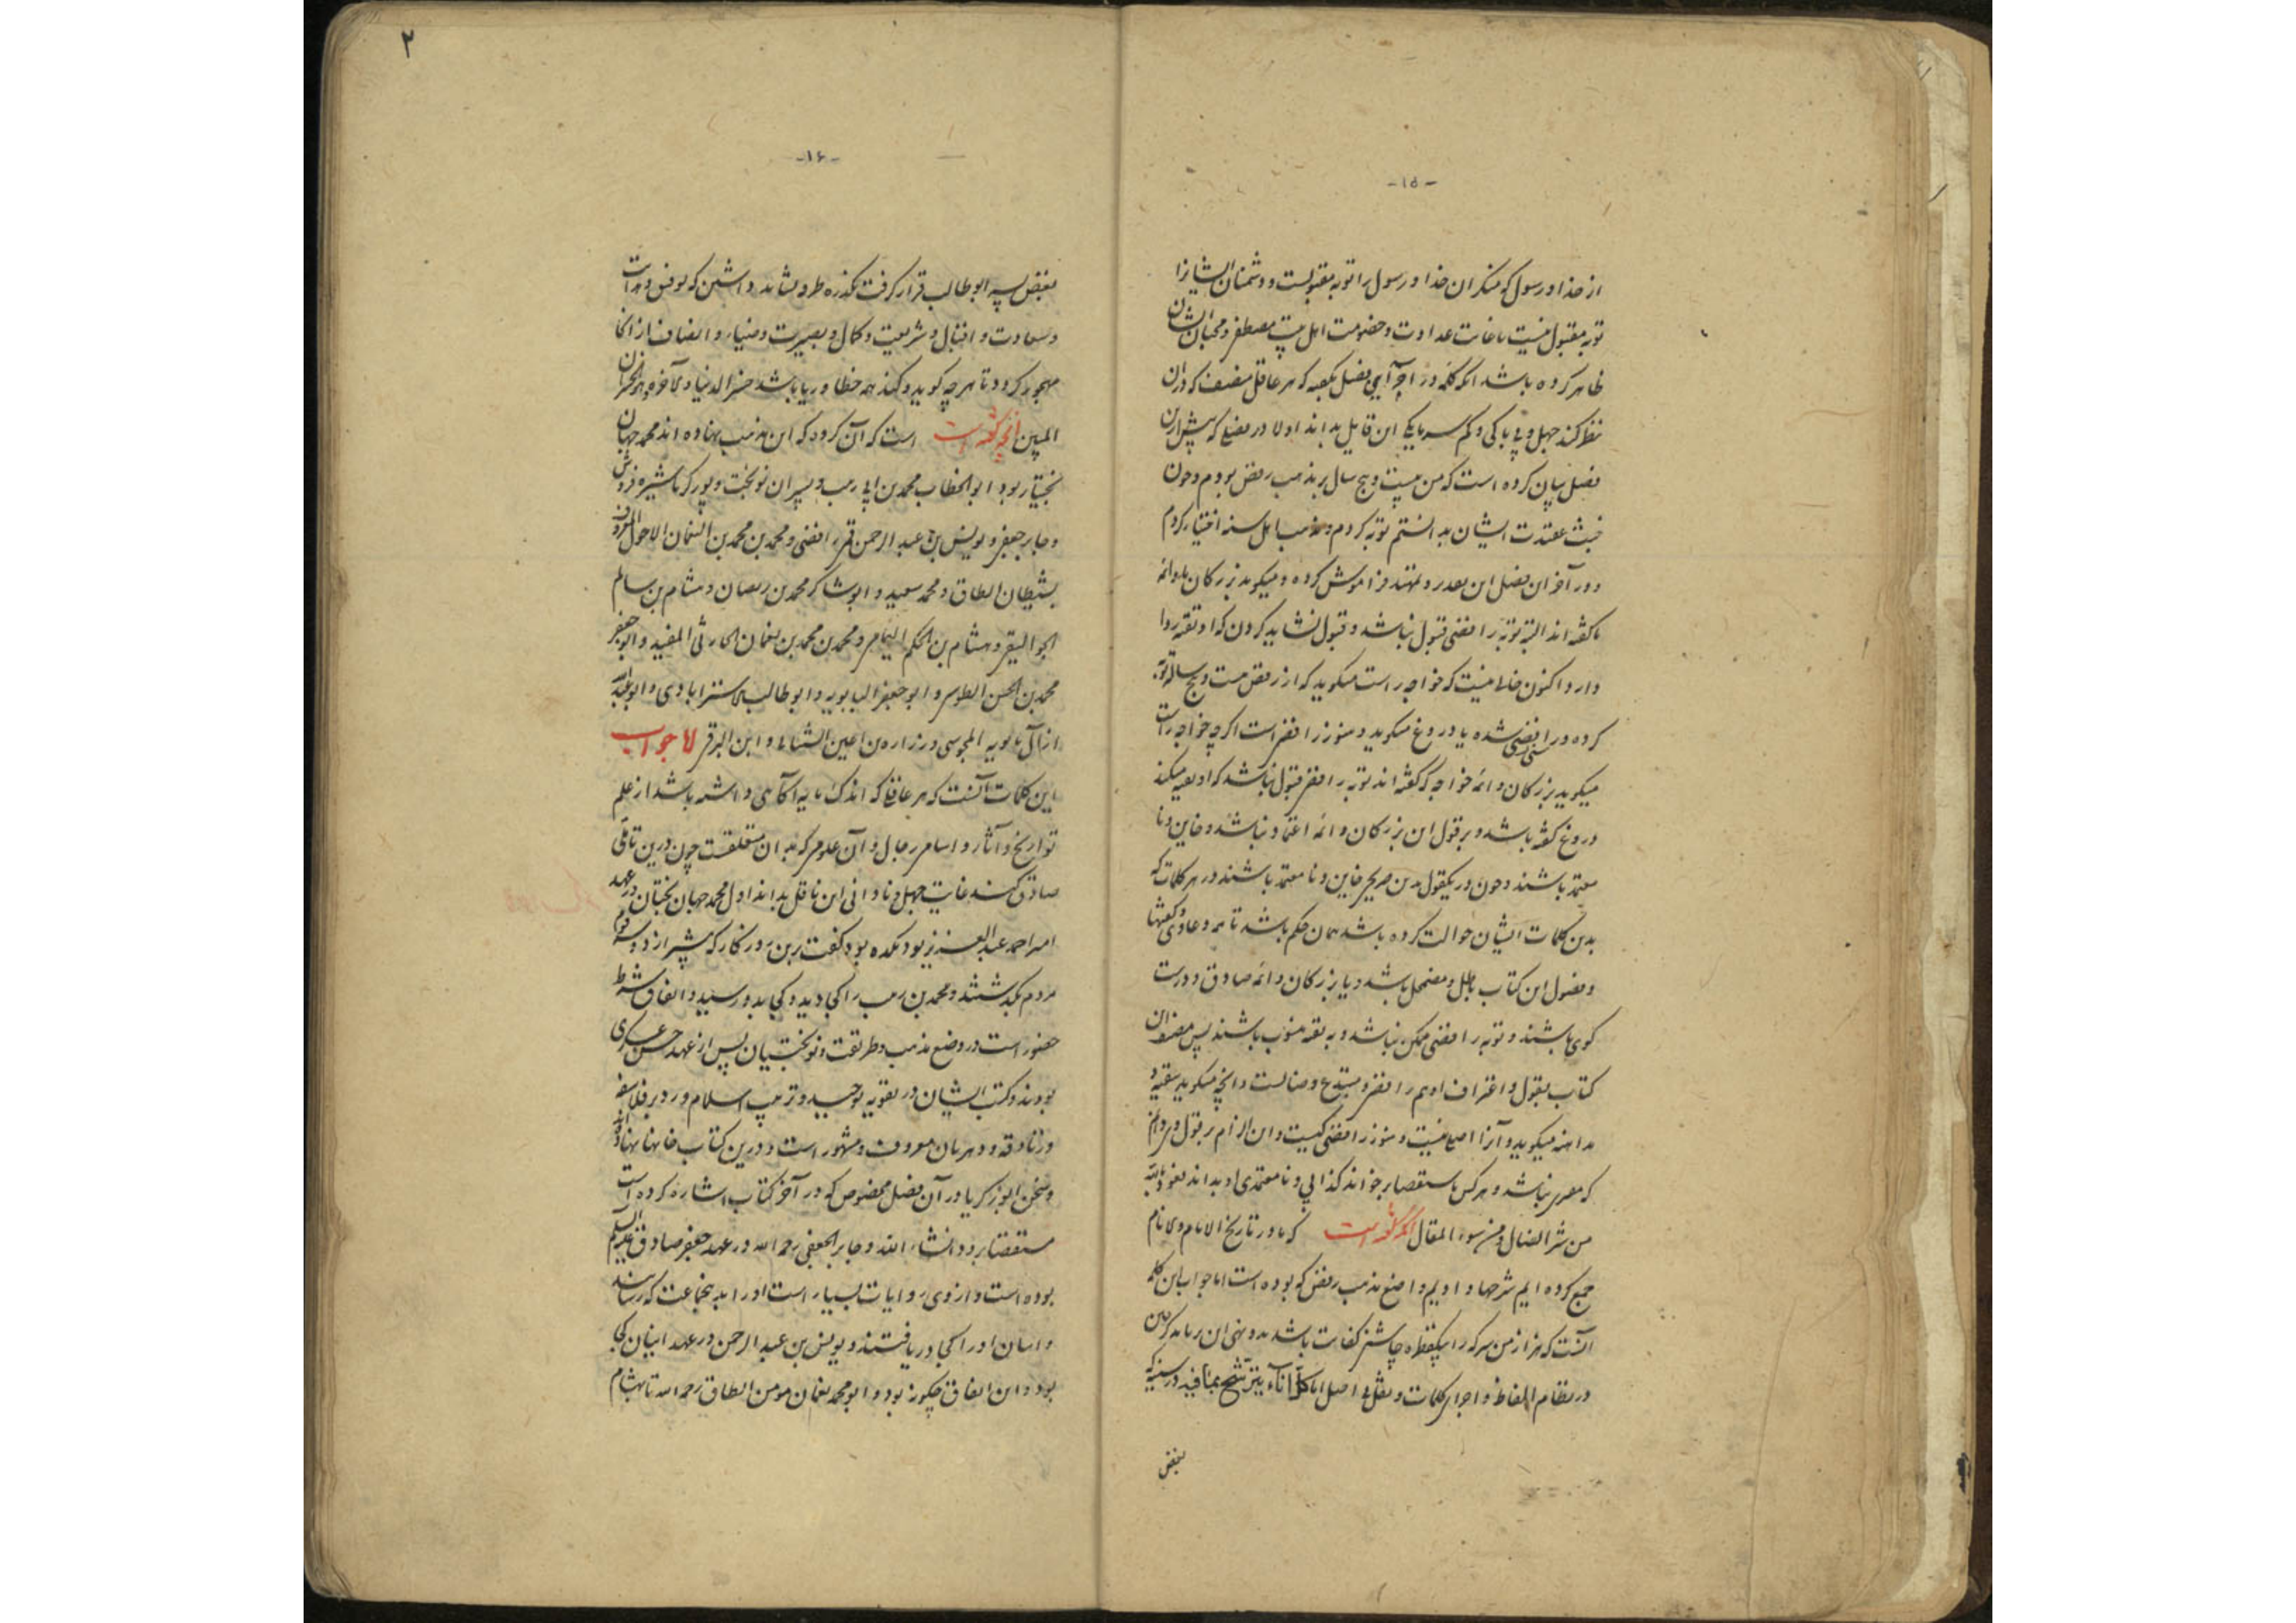 -۱۵-
از خدا و رسول که منکران خدا و رسول را توبه مقبولست و دشمنان ایشانرا
توبه مقبول نیست تا غایت عداوت و خصومت اهل بیت مصطفی و محبان ایشان
ظاهر کرده باشد آنگه در آخر این فصل بگفته که هر عاقل منصف که در آن
نظر کند جهل و بی باکی و کم سرمایگی این قایل بداند اولا در موضع که پیش ازین
فصل بیان کرده است که من بیست و پنج سال بر مذهب رفض بودم و چون
خبث عقیدت ایشان بدانستم توبه کردم و مذهب اهل سنه اختیار کردم
و در آخر این فصل این فراموش کرده و میگوید بزرگان ما و ائمه
ما گفته اند البته توبه رافضی قبول نباشد و قبول نشاید کردن که او تقیه روا
دارد اکنون خالی نیست که خواجه راست میگوید که از رفض بیست و پنج ساله توبه
کرده و رافضی سنی شده یا دروغ میگوید و هنوز رافضی است اگر چه خواجه راست
میگوید بزرگان و ائمه خواجه که گفته اند توبه رافضی قبول نباشد که او تقیه میکند
دروغ گفته باشند و بر قول این بزرگان و ائمه اعتماد نباشد و خاین و نا
معتمد باشند و چون در یکقول بدین صریحی خاین و نا معتمد باشند در هر کلمات که
بدین کلمات ایشان حوالت کرده باشد همان حکم باشد تا همه دعاوی و گفتها
و فصول این کتاب باطل و مضمحل باشد و یا بزرگان و ائمه صادق و درست
گوی باشند و توبه رافضی ممکن نباشد و به تقیه منسوب باشند پس مصنف این
کتاب بقول و اعتراف او هم رافضی و مبتدع و ضالست و آنچه میگوید بتقیه و
مداهنه میگوید و آنرا اصلی نیست و هنوز رافضی کیست و این الزام بر قول
که مفری نباشد و هر کس باستقصا بر خواند کذابی و نا معتمدی او بداند نعوذ بالله
من شر الضال و من سوء المقال آنگه گفته است که ما در تاریخ الایام و الانام
جمع کرده ایم شرحها داده ایم واضع مذهب رفض که بوده است اما جواب این کلمه
آنست که هزار من سرکه را یکقطره چاشنی کفایت باشد
در نظام الفاظ و اجرای کلمات و نقل بی اصل اما کل اناء یترشح بما فیه در سینه که
بغض
۲
-۱۶-
بغض پسر ابوطالب قرار گرفت که توفیق و هدایت
و سعادت و اقبال و شریعت و کمال و بصیرت و ضیاء و انصاف از آنجا
مهجور گردد تا هر چه گوید و کند همه خطا و ریا باشد خسر الدنیا و الآخره ذلک هو الخسران
المبین آنچه گفته است است که آن گروه که این مذهب نهاده اند محمد جهان
بختیار بود ابوالخطاب محمد بن ابی زینب و پسران نوبخت و پور زکریا شیره فروش
و جابر جعفی و یونس بن عبد الرحمن قمی رافضی و محمد بن محمد بن النعمان الاحول المعروف
بشیطان الطاق و محمد سعید و ابو شاکر محمد بن ریصان و هشام بن سالم
الجوالیقی و هشام بن الحکم و محمد بن محمد بن نعمان الحارثی المفید و ابو جعفر
محمد بن الحسن الطوسی و ابو جعفر البابویه و ابو طالب الاستر ابادی و ابو عبد الله
از آل بابویه المجوسی و زراره بن اعین الشیبانی و ابن البرقی اما جواب
این کلمات آنست که هر عاقلی که اندک مایه آگاهی داشته باشد از علم
تواریخ و آثار و اسامی رجال و آن علوم که بدان متعلقست چون درین تاملی
صادق کند غایت جهل و نادانی این ناقل بداند اول محمد جهان بختان در عهد
امیر احمد عبد العزیز بود گفت برین روزگار که پیشتر از دویست
مردم بگذشتند و محمد بن زینب را کجا دید و کجا بدو رسید و اتفاق شرط
حضور است در وضع مذهب و طریقت و نوبختیان پس از عهد حسن عسکری
بودند و کتب ایشان در تقویه توحید و ترتیب اسلام و رد بر فلاسفه
و زنادقه و دهریان معروف و مشهور است و درین کتاب
و سخن ابو زکریا در آن فصل مخصوص که در آخر کتاب اشاره کرده است
مستقصا برود انشاء الله و جابر الجعفی رحمه الله در عهد جعفر صادق علیه السلام
بوده است و از وی روایات بسیار است او را بدینجماعت که رسانید
و ایشان او را کجا دریافتند و یونس بن عبد الرحمن در عهد اینان کی
بود و این اتفاق چگونه بود و ابو محمد نعمان مومن الطاق رحمه الله تا بهشام